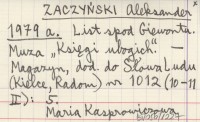 ZACZYŃSKI Aleksander
1979 a. List spod Giewontu.
Muza „Księgi ubogich" —
Magazyn, dod. do Słowa Ludu
(Kielce, Radom) nr 1012 (10-11
II): 5.
Maria Kasprowiczowa